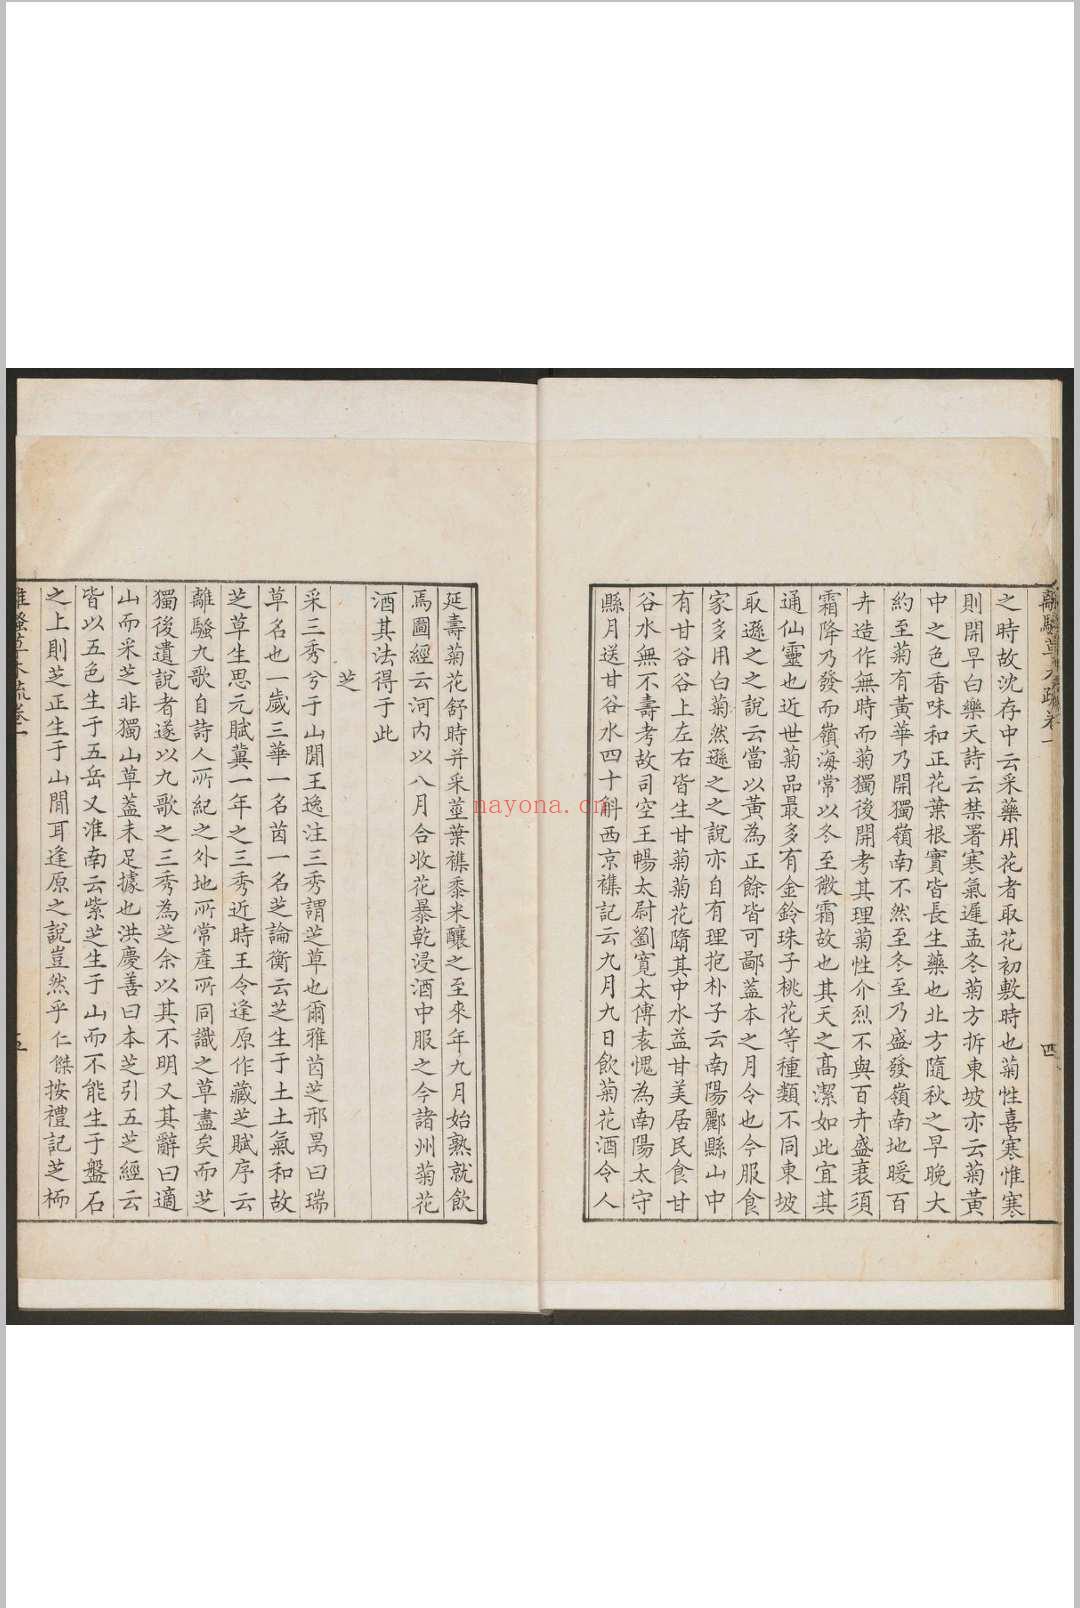 離騷草木疏卷一
四
之時故沈存中云采藥用花者取花初敷時也菊性喜寒惟寒
則開早白樂天詩云禁署寒氣遲孟冬菊方拆東坡亦云菊黃
中之色香味和正花葉根實皆長生藥也北方隨秋之早晚大
約至菊有黃華乃開獨嶺南不然至冬至乃盛發嶺南地暖百
卉造作無時而菊獨後開考其理菊性介烈不與百卉盛衰須
霜降乃發而嶺海常以冬至微霜故也其天之高潔如此宜其
通仙靈也近世菊品最多有金鈴珠子桃花等種類不同東坡
取遜之之說云當以黃為正餘皆可鄙蓋本之月令也今服食
家多用白菊然遜之之說亦自有理抱朴子云南陽酈縣山中
有甘谷谷上左右皆生甘菊菊花隋其中水益甘美居民食甘
谷水無不壽考故司空王暢太尉劉寬太傅袁愧為南陽太守
縣月送甘谷水四十斛西京襍記云九月九日飲菊花酒令人
延壽菊花舒時并采莖葉襍黍米釀之至來年九月始熟就飲
焉圖經云河內以八月合收花暴乾浸酒中服之今諸州菊花
酒其法得于此
芝
采三秀兮于山閒王逸注三秀謂芝草也爾雅茵芝邢昺曰瑞
草名也一歲三華一名茵一名芝論衡云芝生于土土氣和故
芝草生思元賦冀一年之三秀近時王令逢原作藏芝賦序云
離騷九歌自詩人所紀之外地所常產所同識之草盡矣而芝
獨後遺說者遂以九歌之三秀為芝余以其不明又其辭曰適
山而采芝非獨山草蓋未足據也洪慶善曰本芝引五芝經云
皆以五色生于五岳又淮南云紫芝生于山而不能生于盤石
之上則芝正生于山閒耳逢原之說豈然乎仁傑按禮記芝栭
離騷草木疏卷一
五
nayona.cn